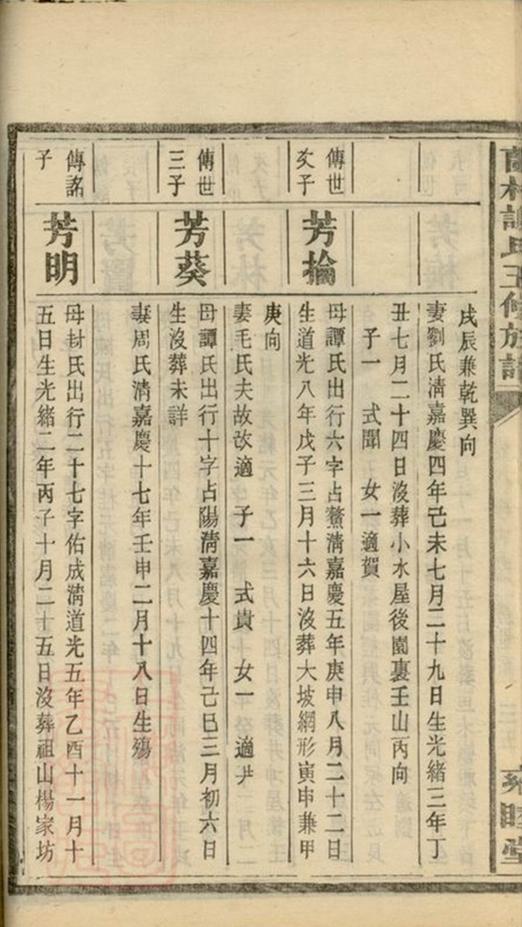 戊辰兼乾巽向
妻劉氏淸嘉慶四年己未七月二十九日生光緒三年丁
丑七月二十四日沒葬小水屋後園裏壬山丙向
子一 式聞 女一適賀
傳世
次子
芳掄
母譚氏出行六字占鰲淸嘉慶五年庚申八月二十二日
生道光八年戊子三月十六日沒葬大坡網形寅申兼甲
庚向
妻毛氏夫故改適 子一 式貴 女一 適尹
傳世
三子
芳葵
母譚氏出行十字占陽淸嘉慶十四年己巳三月初六日
生沒葬未詳
妻周氏淸嘉慶十七年壬申二月十八日生殤
傳詺
子
芳明
母封氏出行二十七字佑成淸道光五年乙酉十一月十
五日生光緒二年丙子十月二十五日沒葬祖山楊家坊
氏五修族譜
睦堂